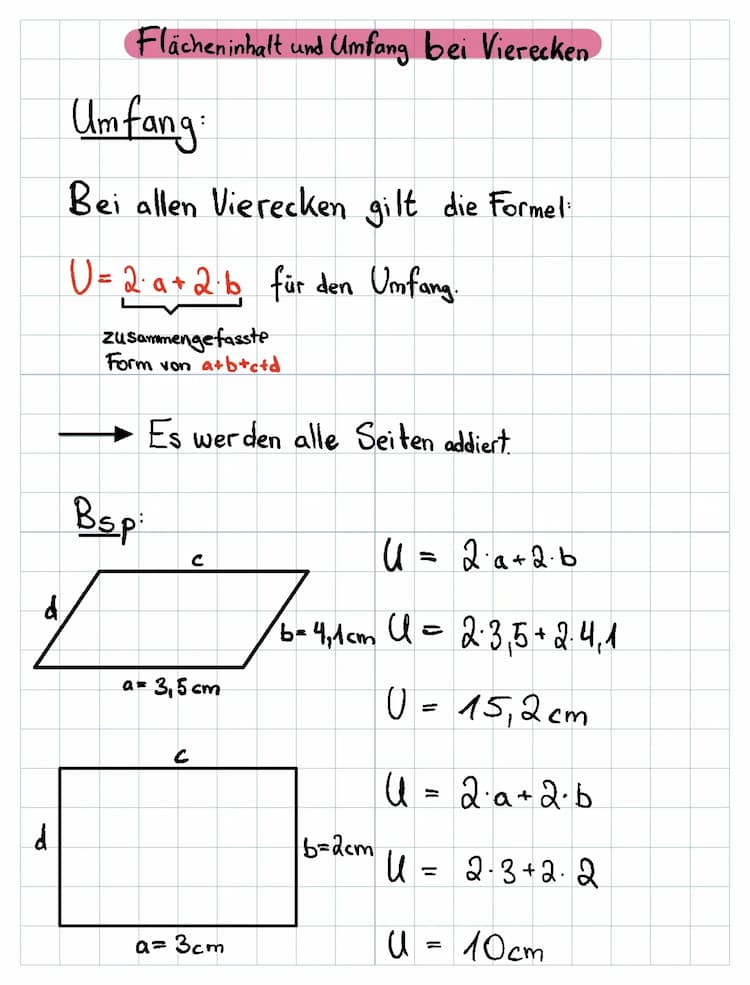 Flächeninhalt und Umfang bei Vierecken
Umfang:
Bei allen Vierecken gilt die Formel:
U = 2·a + 2·b für den Umfang.
zusammengefasste
Form von a+b+c+d
→ Es werden alle Seiten addiert.
Bsp:
c
d
b = 4,1cm
a = 3,5cm
U = 2·a + 2·b
U = 2·3,5 + 2·4,1
U = 15,2cm
c
d
b = 2cm
a = 3cm
U = 2·a + 2·b
U = 2·3 + 2·2
U = 10cm